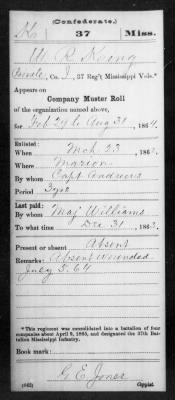 (Confederate.)
37 Miss.
W. R. King
Private, Co. I, 37 Reg't Mississippi Vols.*
Appears on
Company Muster Roll
of the organization named above,
for Feb 29 to Aug 31, 1864.
Enlisted:
When Mch 23, 186
Where Marion
By whom Capt Andrews
Period 3 yrs
Last paid:
By whom Maj Williams
To what time Dec 31, 1863.
Present or absent Absent
Remarks: Absent wounded
July 5. 64
*This regiment was consolidated into a battalion of four companies about April 9, 1865, and designated the 37th Battalion Mississippi Infantry.
Book mark:
G. E. Jones
(642) Copyist.